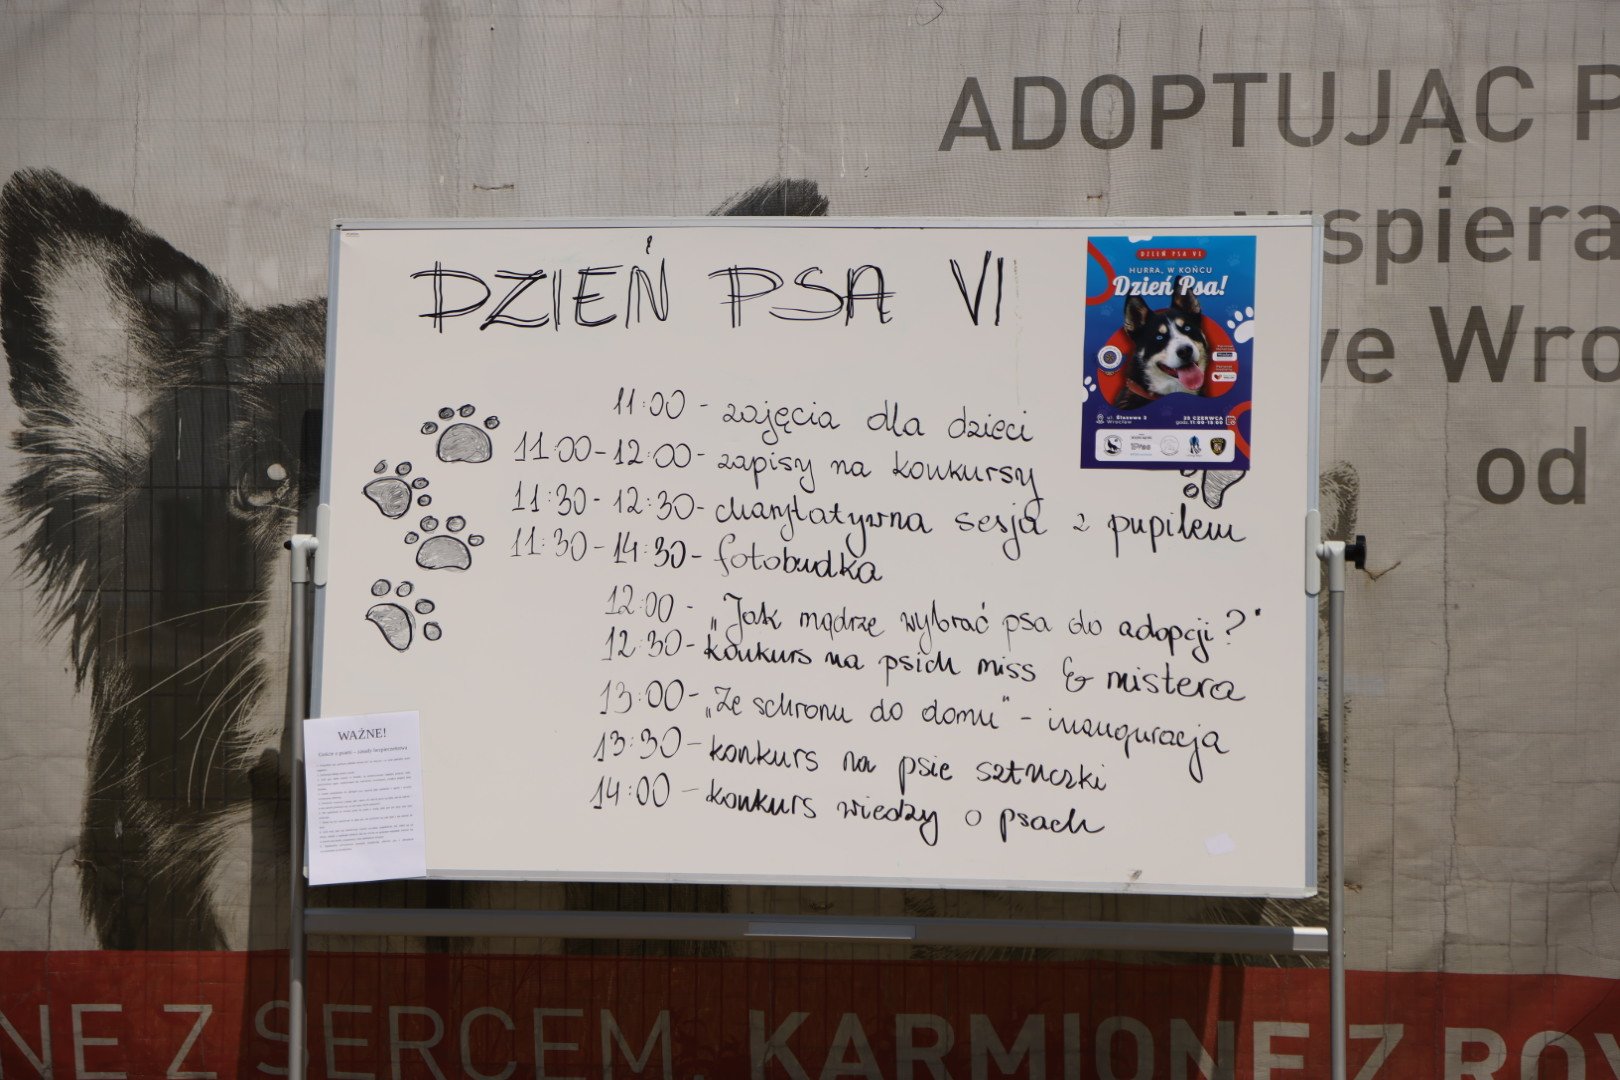 ADOPTUJĄC P
wspiera
we Wro
od
DZIEŃ PSA VI
DZIEŃ PSA VI
HURRA, W KOŃCU
Dzień Psa!
ul. Ślazowa 2
Wrocław
25 CZERWCA
godz. 11:00-15:00
11:00 - zajęcia dla dzieci
11:00-12:00- zapisy na konkursy
11:30-12:30- charytatywna sesja z pupilem
11:30-14:30- fotobudka
12:00 - „Jak mądrze wybrać psa do adopcji?"
12:30- konkurs na psich miss & mistera
13:00- „Ze schronu do domu" - inauguracja
13:30- konkurs na psie sztuczki
14:00 - konkurs wiedzy o psach
WAŻNE!
NE Z SERCEM. KARMIONE Z ROY